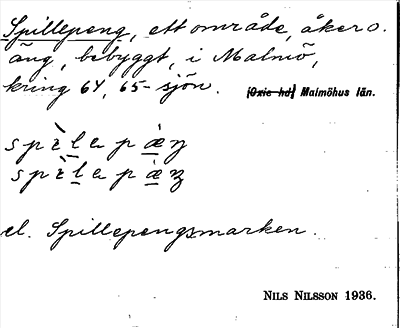 Spillepeng, ett område, åker o.
äng, bebyggt, i Malmö,
kring 64, 65-sjön. [Oxie hd] Malmöhus län.
spìlapæ̀ŋ
spìlapæ̀ŋ
el. Spillepengsmarken.
NILS NILSSON 1936.